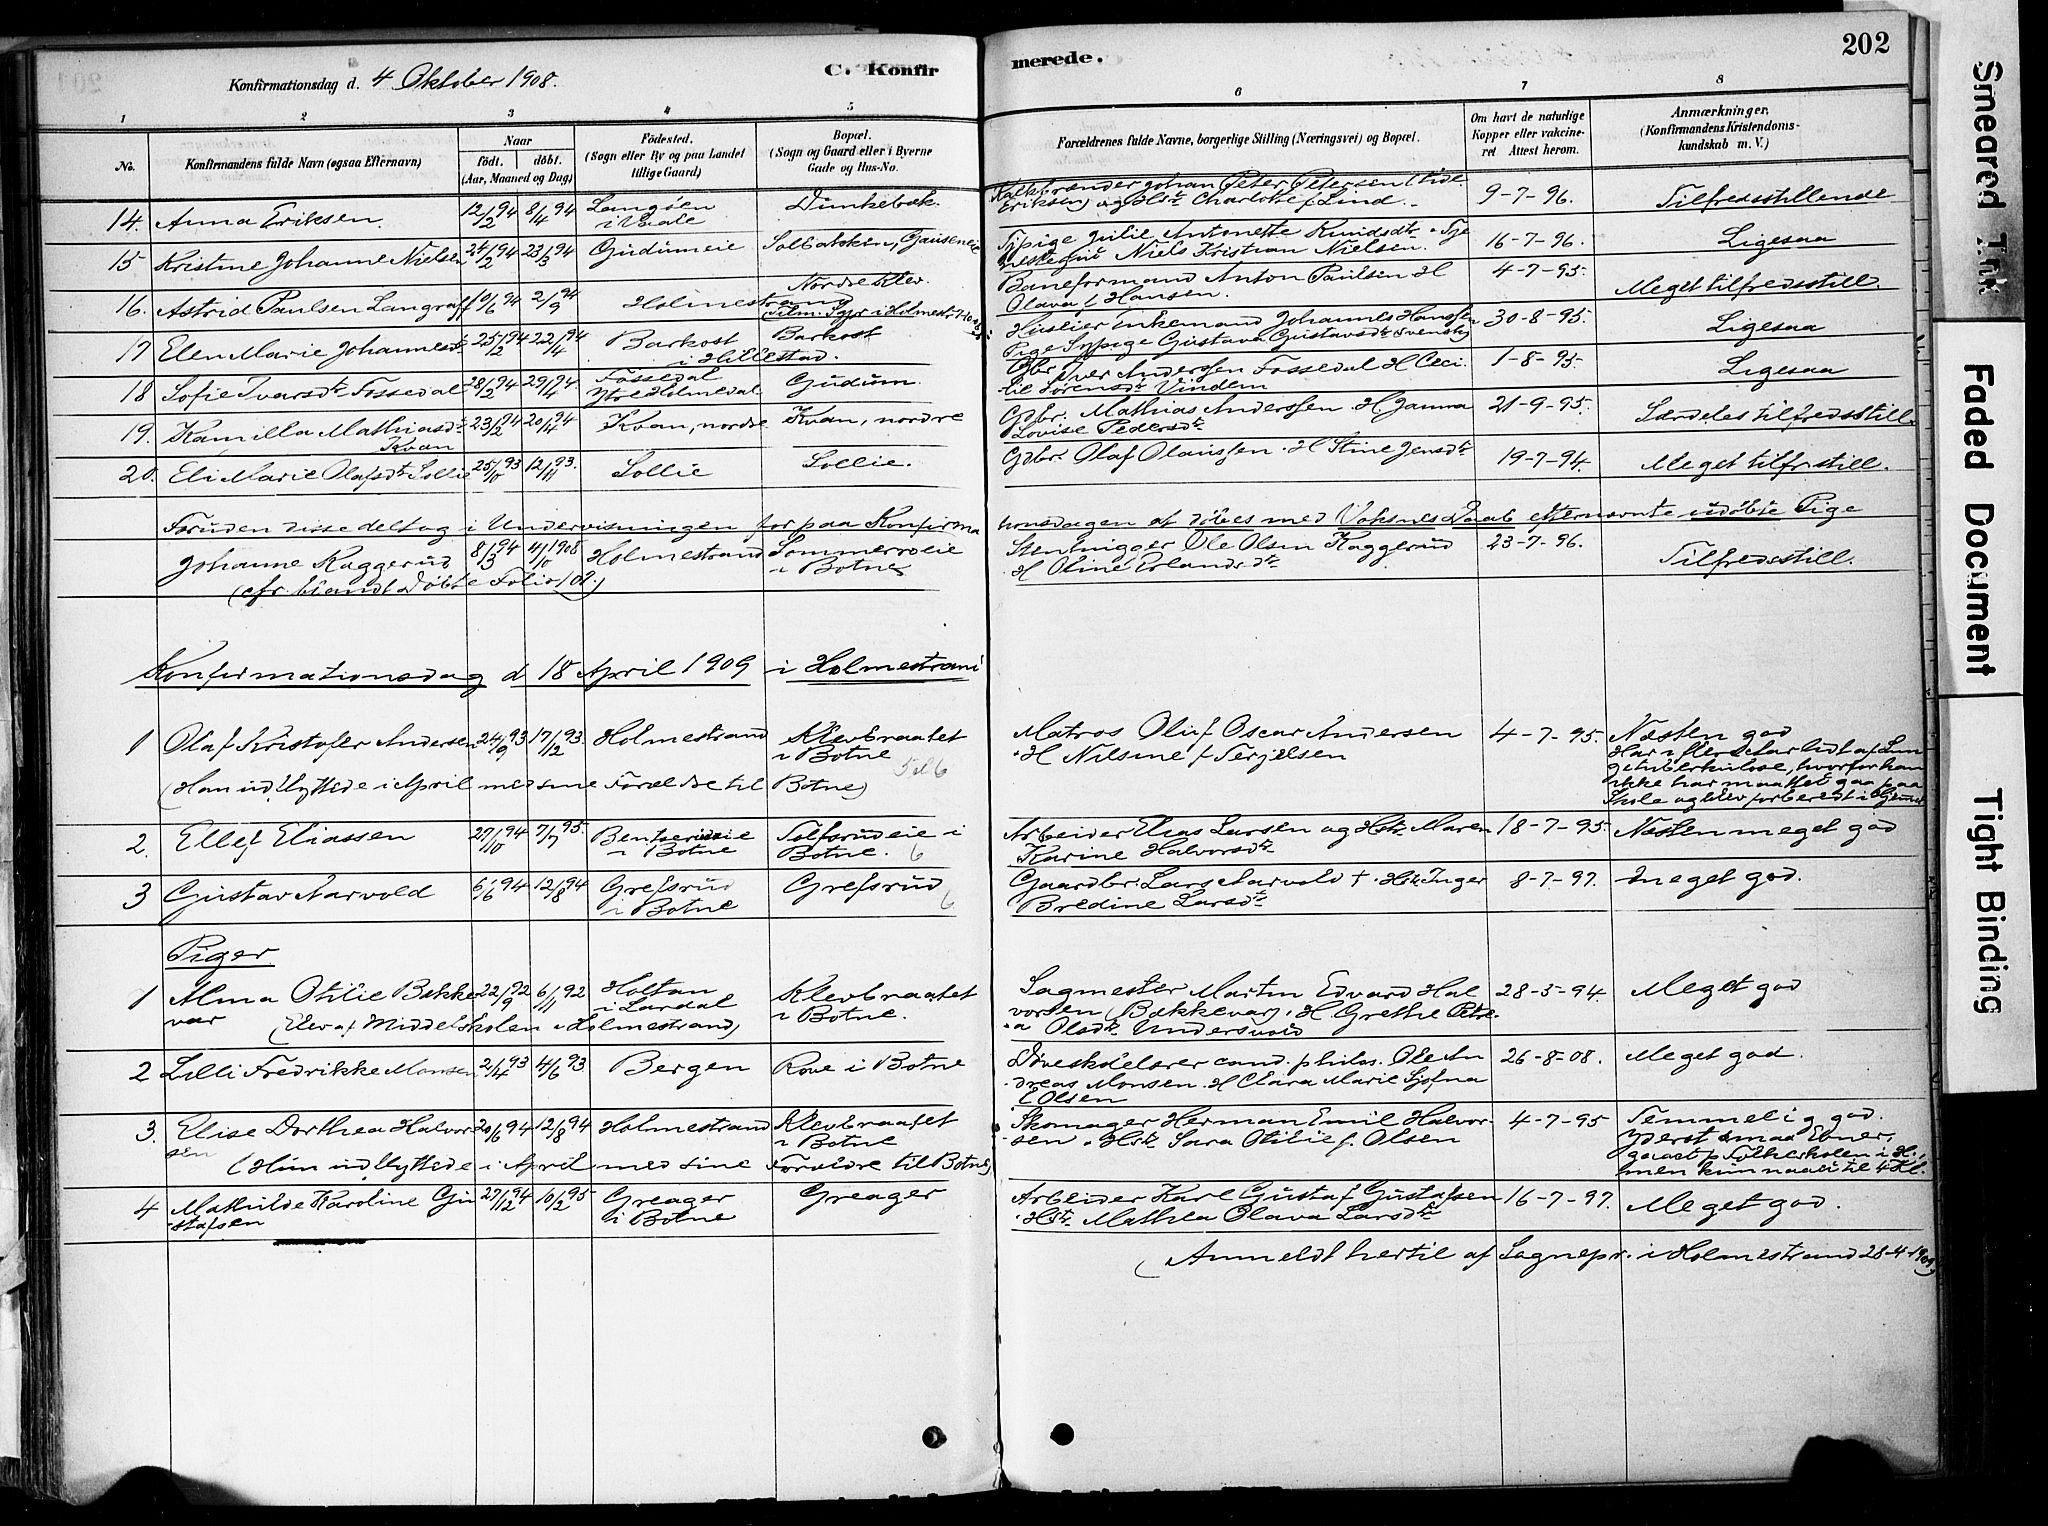 202
Konfirmationsdag d. 4 Oktober 1908.
C. Konfirmerede.
1 2 3 4 5 6 7 8
No. Konfirmandens fulde Navn (ogsaa Efternavn) Naar født. døbt. (Aar, Maaned og Dag) Fødested. (Sogn eller By og paa Landet tillige Gaard) Bopæl. (Sogn og Gaard eller i Byerne Gade og Hus-No. Forældrenes fulde Navne, borgerlige Stilling (Næringsvei) og Bopæl. Om havt de naturlige Kopper eller vakcineret Attest herom. Anmærkninger. (Konfirmandens Kristendomskundskab m. V.)
14. Anna Eriksen. 12/2 94 8/4 94 Langøen i Vaale Dunkebæk. Johan Peter Petersen Eriksen) og Hst Charlotte f. Lind. 9-7-96. Tilfredsstillende
15 Kristine Johanne Nielsen 24/2 94 23/3 94 Gudumeie Solbakken, Gauseneie Sypige Julie Antonette Knudsdtr Niels Kristian Nielsen. 16-7-96. Ligesaa
16. Astrid Paulsen Langraff 10/6 94 2/9 94 Holmestrand Nordre Klev. Baneformand Anton Paulsen H Olava f Hansen. 4-7-95. Meget tilfredsstill.
17 Elen Marie Johannesdtr 25/2 94 22/4 94 Barkost i Hillestad. Barkost Johannes Hanssen Pige Sypige Gustava Gustavsdtr (svensk) 30-8-95. Ligesaa
18 Sofie Ivarsdtr Fossedal 28/2 94 29/4 94 Fossedal Ytre Holmedal Gudum. Gbr Iver Anderssen Fossedal H Cecilie Sørensdtr Vindem 1-8-95. Ligesaa
19. Kamilla Mathiasdtr Kvan 23/2 94 20/4 94 Kvan, nordre Kvan, nordre Gdbr. Mathias Anderssen. H. Janna Lovise Pedersdtr 21-9-95. Særdeles tilfredsstill.
20. Eli Marie Olafsdtr Sollie 25/10 93 12/11 93. Sollie Sollie. Gdbr. Olaf Olaussen. H Stine Jensdtr 19-7-94. Meget tilfrstill.
Foruden disse deltog i Undervisningen for paa Konfirmationsdagen at døbes med Voksnes Daab efternævnte udøbte Pige
Johanne Kaggerud 8/3 94 4/10 1908 Holmestrand Sommerroeie i Botne Stenhugger Ole Olsen Kaggerud H Oline Erlandsdtr 23-7-96. Tilfredsstill.
(cfr. blandt Døbte Folio 101.)
Konfirmationsdag d 18 April 1909 i Holmestrand
1 Olaf Kristofer Andersen 24/9 93 17/12 93. Holmestrand Klevbraatet i Botne Matros Oluf Oscar Andersen H Nilsine f Terjelsen 4-7-95. Næsten god
Har i flere Aar lidt af Lungetuberkulose, hvorfor han ikke har maattet gaa paa Skole og blev forberedt i
(Han udflyttede i April med sine Forældre til Botne)
2. Ellef Eliassen 27/10 94 7/7 95. Bentserødeie i Botne Tolfsrudeie i Botne. 6 Arbeider Elias Larsen og Hstr. Maren Karine Halvorsdtr 18-7-95. Næsten meget god
3 Gustav Aarvold 6/6 94 12/8 94 Grefsrud i Botne Grefsrud 6 Gaardbr. Lars Aarvold † . Hstr. Inger Bredine Larsdtr 8-7-97. Meget god.
Piger
1 Alma Otilie Bækkevar 22/9 92 6/11 92 Holtan i Lardal Klevbraatet i Botne. Sagmester Martin Edvard Halvorsen (Bækkevar). H Grethe Petrea Olsdtr Undersvold 28-5-94. Meget god
(Elev af Middelskolen i Holmestrand)
2 Lilli Fredrikke Monsen 2/4 93 4/6 93 Bergen Rove i Botne Døveskolelærer cand. philos. Ole Andreas Monsen. H Clara Marie Sjofna f Olsen 26-8-08. Meget god.
3. Elise Dorthea Halvorsen 20/6 94 12/8 94 Holmestrand Klevbraatet i Botne Skomager Herman Emil Halvorsen. Hstr. Sara Otilie f. Olsen 4-7-95 Temmelig god.
Yderst smaa Evner, gaaet p Folkeskolen i H., men kun naaet til 4 Kl.
(Hun udflyttede i April med sine Forældre til Botne)
4 Mathilde Karoline Gustafsen 27/12 94 10/2 95 Greager i Botne Greager Arbeider Karl Gustaf Gustafsen Hstr. Mathea Olava Larsdtr 16-7-97. Meget god.
(Anmeldt hertil af Sognepr. i Holmestrand 28-4-1909)
Smeared Ink
Faded Document
Tight Binding